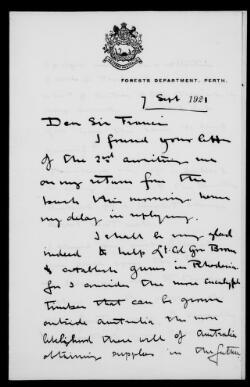 FORESTS DEPARTMENT, PERTH.
7 Sept 1921
Dear Sir Francis
I found your letter
of the 2nd awaiting me
on my return from the
bush this morning hence
my delay in replying.
I shall be very glad
indeed to help Lt Col Gor Brown
to establish gums in Rhodesia
for I consider the more Eucalypt
timber that can be grown
outside Australia the more
likelihood there will of Australia
obtaining supplies in the future